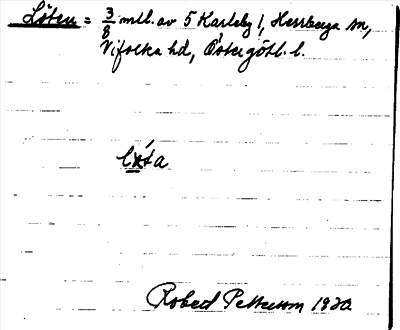 Löten = 3/8 mtl. av 5 Karleby 1, Herrberga sn,
Vifolka hd, Östergötl. l.
Robert Pettersson 1920